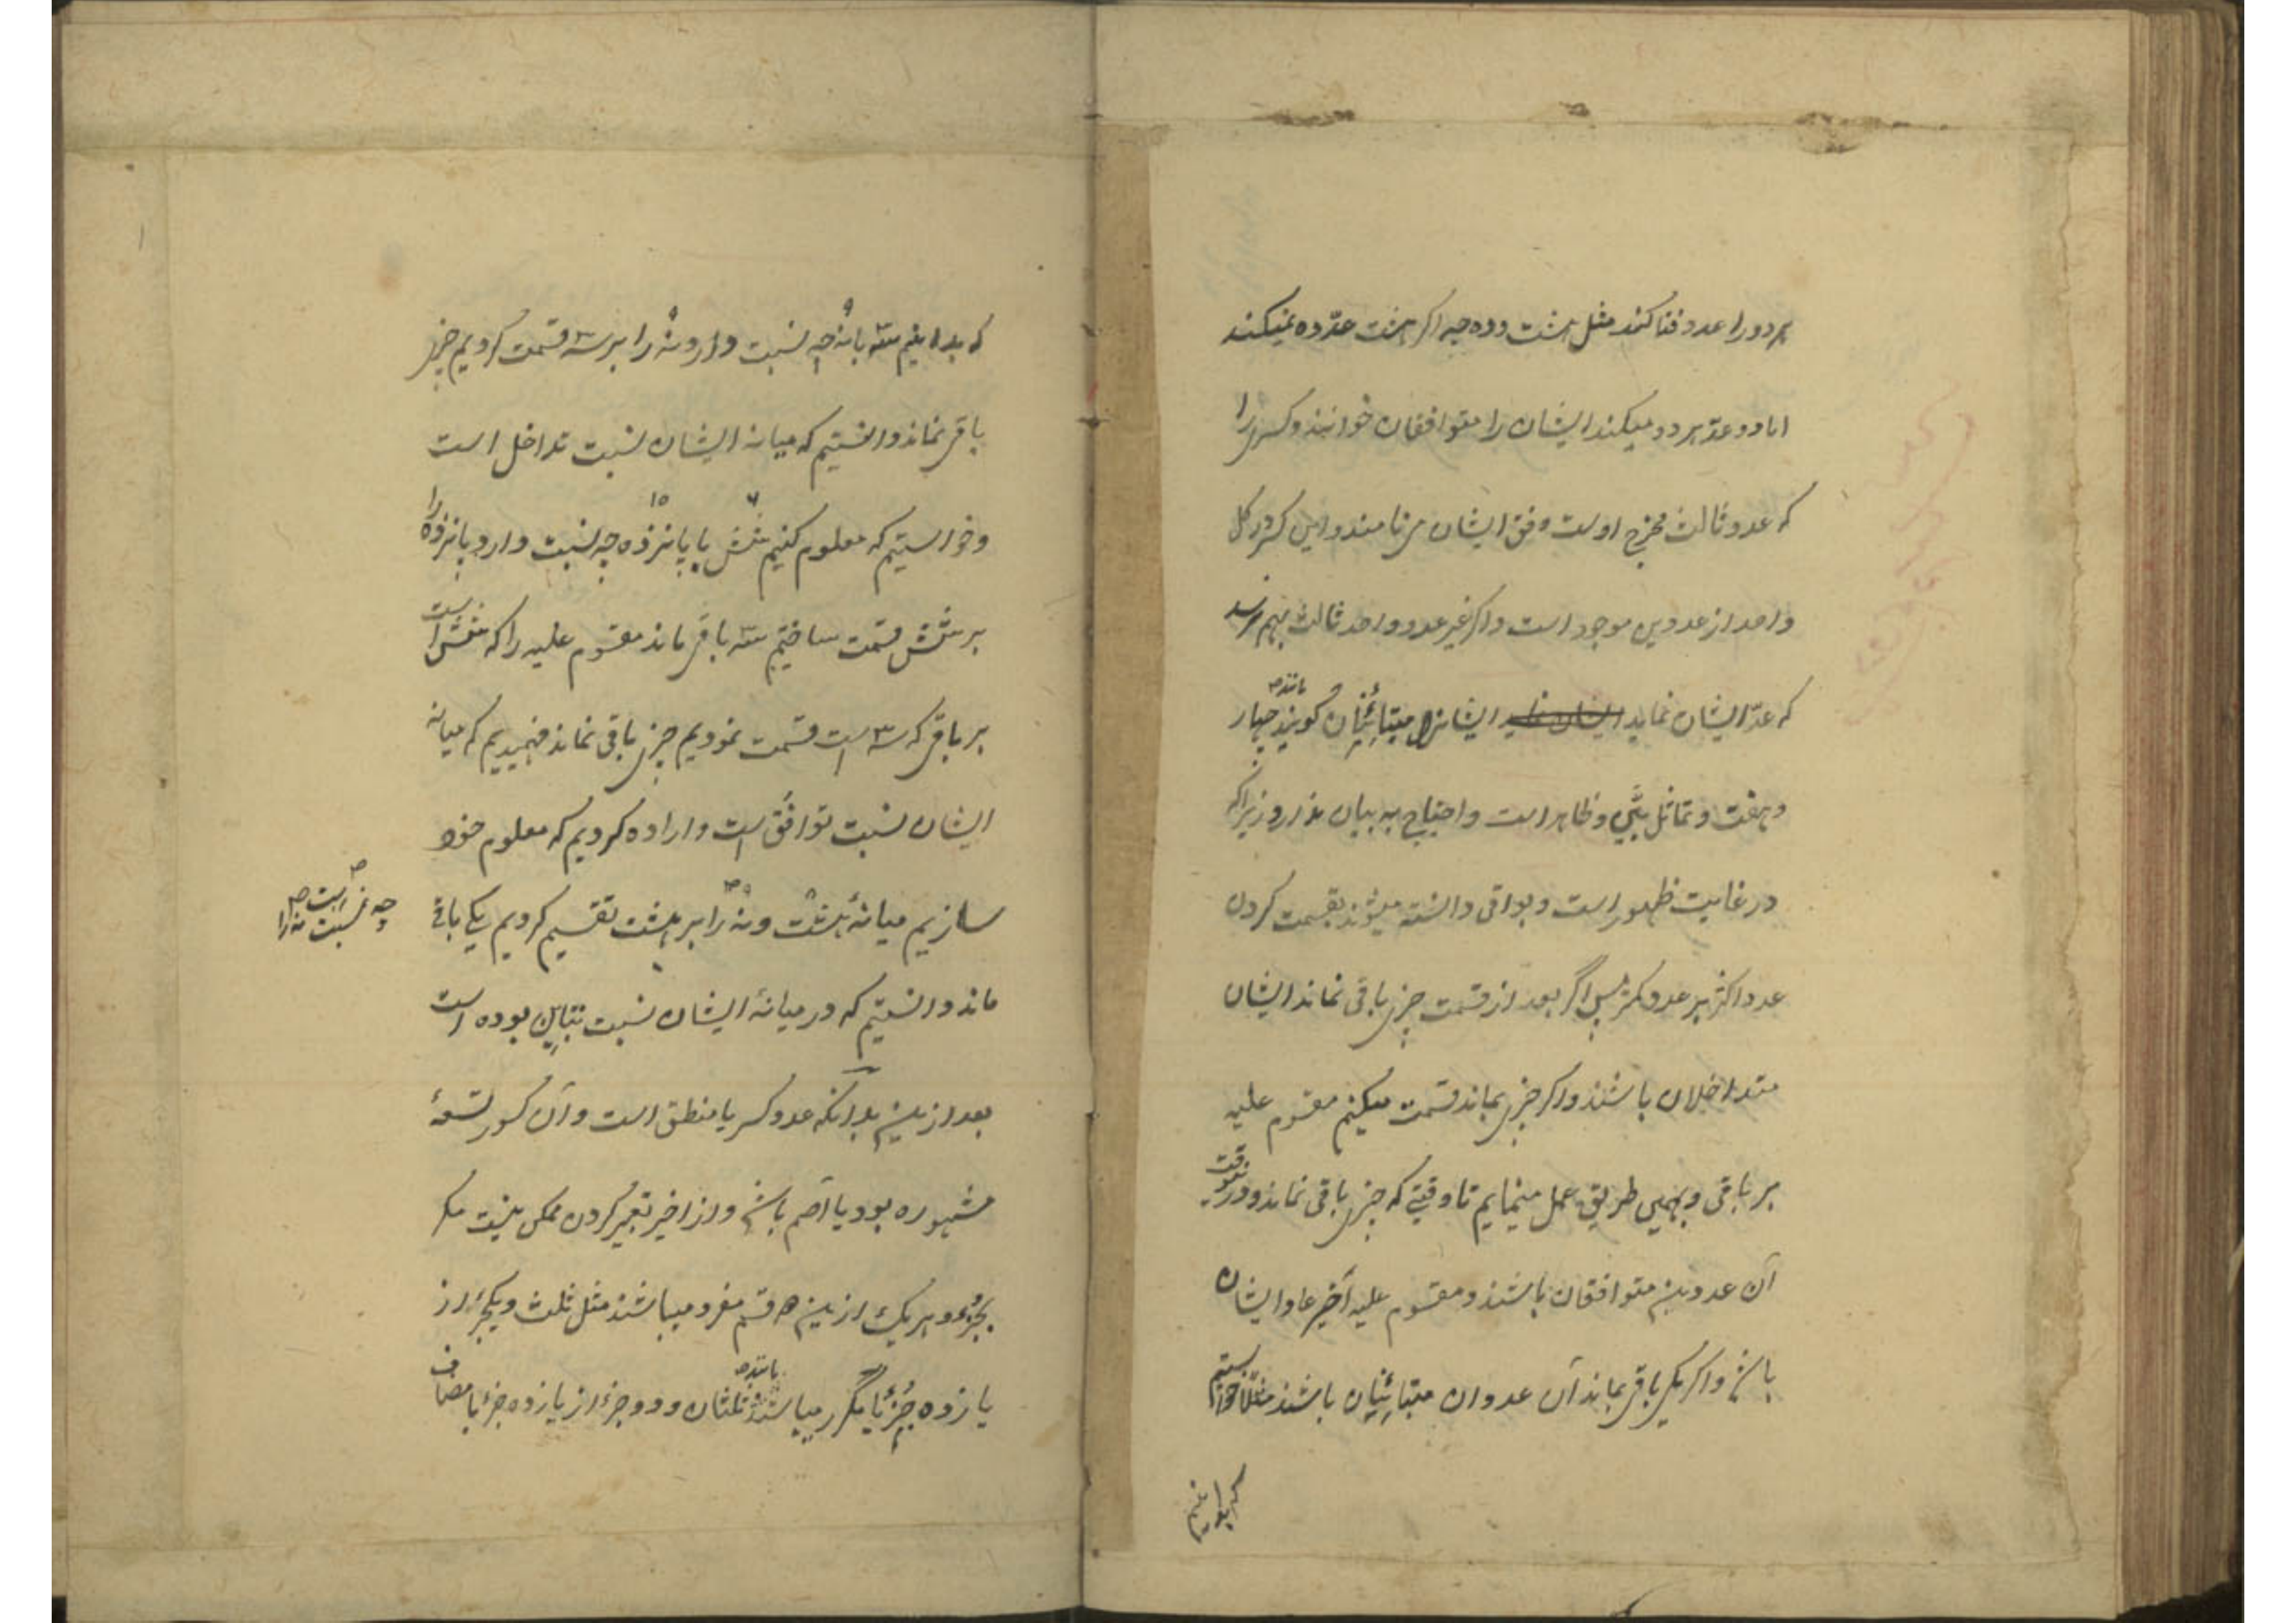 هر دو را عدد فنا کند مثل هشت و ده چه اکر هشت عدّ ده نمیکند
اما دو عدّ هر دو میکند ایشان را متوافقان خوانند و کسری را
که عدد ثالث مخرج اوست وفق ایشان می نامند و این کسر در کل
واحد از عددین موجود است و اکر غیر عدد واحد ثالث بهم نرسد
که عدّ ایشان نماید ایشانرا متباینان کویند مانند چهار
و هفت و تماثل بیّن و ظاهر است و احتیاج به بیان ندارد زیراکه
در غایت ظهور است و بواقی دانسته میشوند بقسمت کردن
عدد اکثر بر عدد کمتر پس اگر بعد از قسمت چیزی باقی نماند ایشان
متداخلان باشند و اکر چیزی بماند قسمت میکنیم مقسوم علیه
بر باقی و بهمین طریق عمل مینمایم تا وقتی که چیزی باقی نماند و درینوقت
آن عددین متوافقان باشند و مقسوم علیه آخیر عاد ایشان
باشد و اکر یکی باقی بماند آن عددان متباینان باشند مثلاً خواستیم
که بدانیم
که بدانیم سه با نه چه نسبت دارد نه را بر سه قسمت کردیم چیزی
۹ ۹
باقی نماند دانستیم که میانه ایشان نسبت تداخل است
و خواستیم که معلوم کنیم شش با پانزده چه نسبت دارد پانزده را
۶ ۱۵
بر شش قسمت ساختیم سه باقی ماند مقسوم علیه را که شش است
بر باقی که سه است قسمت نمودیم چیزی باقی نماند فهمیدیم که میانه
ایشان نسبت توافق است و اراده کردیم که معلوم خود
سازیم میانهٔ هشت و نه را بر هشت تقسیم کردیم یکی باقی
چه نسبت است نه را
ماند دانستیم که در میانهٔ ایشان نسبت تباین بوده است
بعد ازین بدانکه عدد کسر یا منطق است و آن کسور تسعهٔ
مشهوره بود یا اصم باشد و از اخیر تعبیر کردن ممکن نیست مکر
بجزء و هر یک ازین دو قسم مفرد میباشند مثل ثلث و یکجزء از
یازده جزء یا مکرر میباشند مانند ثلثان و دو جزء از یازده جزء یا مضاف